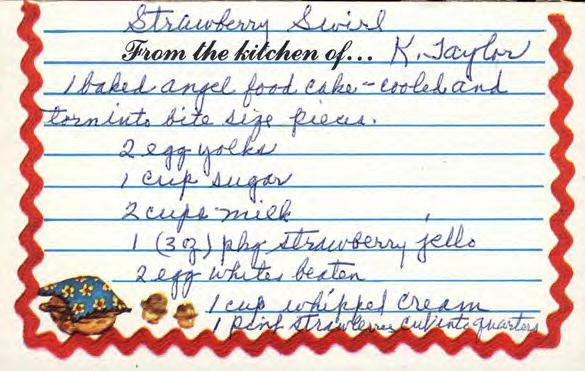 Strawberry Swirl
From the kitchen of... K. Taylor
1 baked angel food cake - cooled and
torn into bite size pieces.
2 egg yolks
1 cup sugar
2 cups milk
1 (3 oz) pkg strawberry jello
2 egg whites beaten
1 cup whipped cream
1 pint strawberries cut into quarters